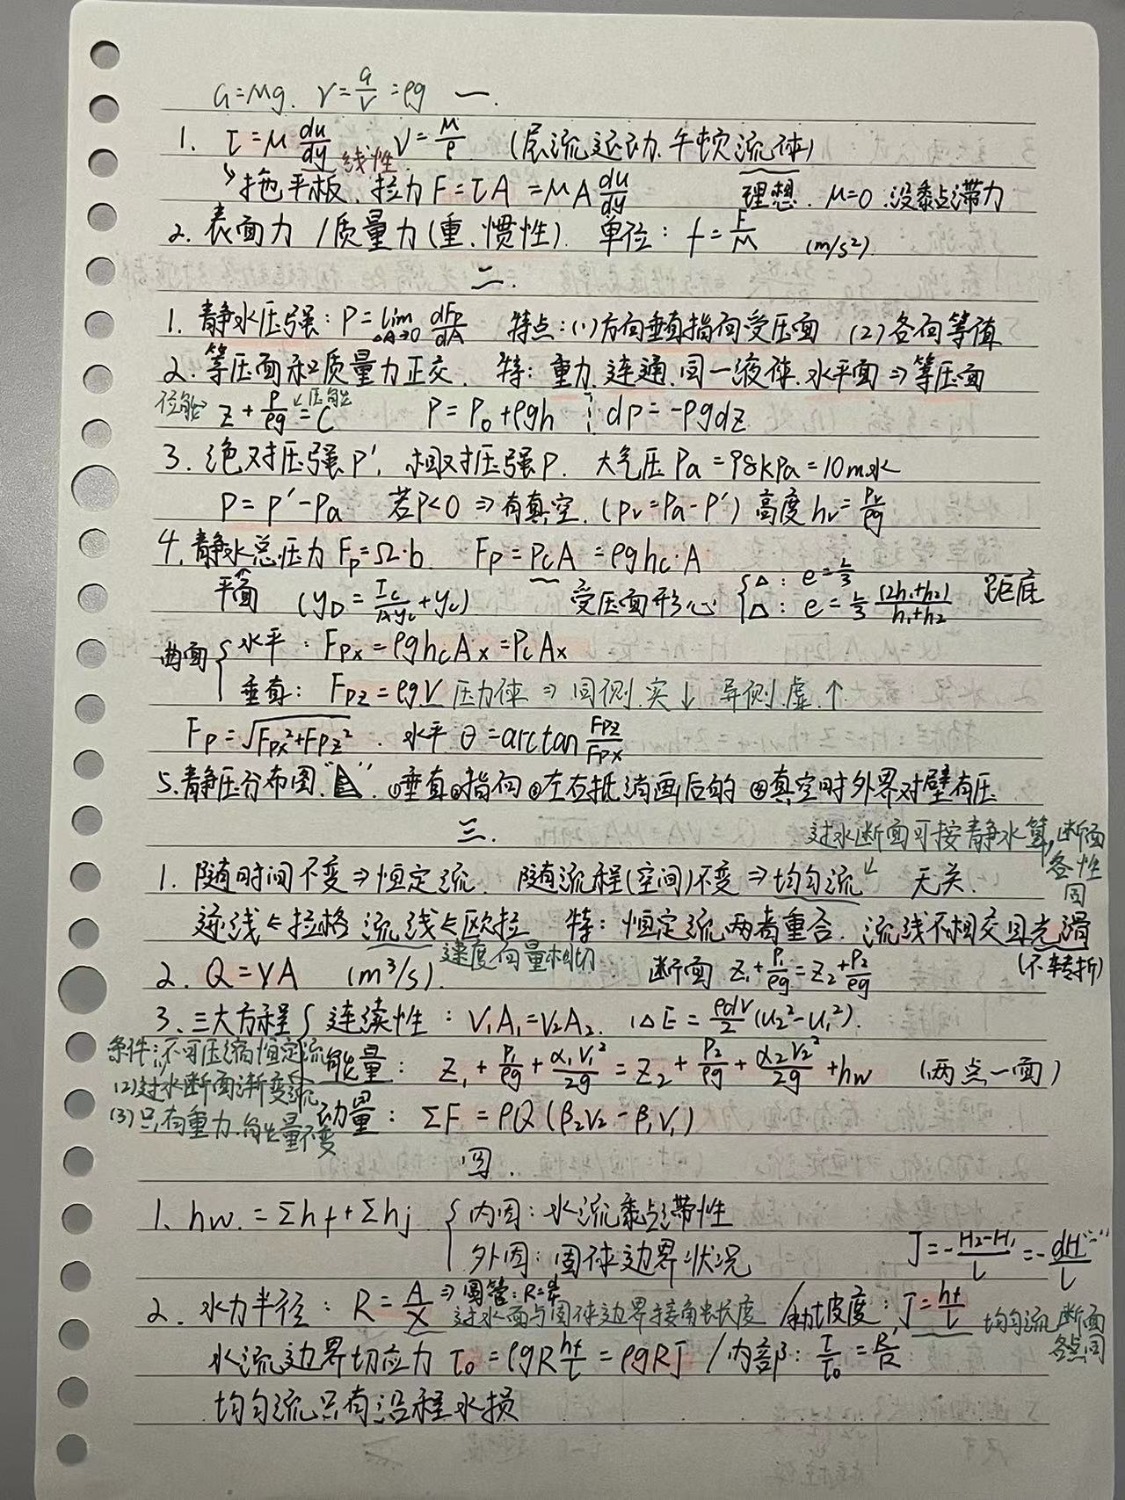 G=Mg. γ=G/V=ρg 一.
1. τ=μ du/dy 线性 ν=μ/ρ (层流运动.牛顿流体)
↘拖平板. 拉力F=τA=μA du/dy 理想. μ=0.没黏滞力
2. 表面力/质量力(重.惯性). 单位: f=F/M (m/s²).
二.
1. 静水压强: P=lim ΔA→0 dFp/dA 特点:(1)方向垂直指向受压面 (2)各向等值
2. 等压面和质量力正交. 特: 重力.连通.同一液体.水平面⇒等压面
位能↗ z+P/ρg=C ↙压能 P=P₀+ρgh dp=-ρgdz.
3. 绝对压强P'. 相对压强P. 大气压Pa=98kPa=10m水
P=P'-Pa 若P<0⇒有真空. (Pv=Pa-P') 高度hv=Pv/ρg
4. 静水总压力Fp=Ω·b. Fp=PcA=ρghc·A
平面 (yD=Ic/Ayc+yc) 受压面形心 {△: e=L/3 距底
△: e=L/3 (2h₁+h₂)/(h₁+h₂)
曲面{水平: Fpx=ρghcAx=PcAx
垂直: Fpz=ρgV 压力体⇒同侧.实↓ 异侧.虚.↑
Fp=√(Fpx²+Fpz²). 水平θ=arctan Fpz/Fpx
5.静压分布图. ①垂直②指向③左右抵消画后的④真空时外界对壁有压
三. 过水断面可按静水算,断面各性同
1. 随时间不变⇒恒定流. 随流程(空间)不变⇒均匀流↙ 无关.
迹线←拉格 流线←欧拉 特: 恒定流两者重合. 流线不相交且光滑
速度向量相切 (不转折)
2. Q=VA (m³/s). 断面z₁+P₁/ρg=z₂+P₂/ρg
3. 三大方程{连续性: V₁A₁=V₂A₂. ΔE=ρdV/2(u₂²-u₁²).
条件:不可压缩恒定流
能量: z₁+P₁/ρg+α₁V₁²/2g=z₂+P₂/ρg+α₂V₂²/2g+hw (两点一面)
(2)过水断面渐变流
(3)只有重力.能量不变
动量: ΣF=ρQ(β₂V₂-β₁V₁)
四.
1. hw.=Σhf+Σhj {内因: 水流黏滞性
外因: 固体边界状况 J=-(H₂-H₁)/L=-dH/L
2. 水力半径: R=A/χ ⇒圆管:R=d/4 过水面与固体边界接触长度/水力坡度: J=hf/L 均匀流断面各点同
水流边界切应力τ₀=ρgR hf/L=ρgRJ/内部: τ/τ₀=R'/R
均匀流只有沿程水损